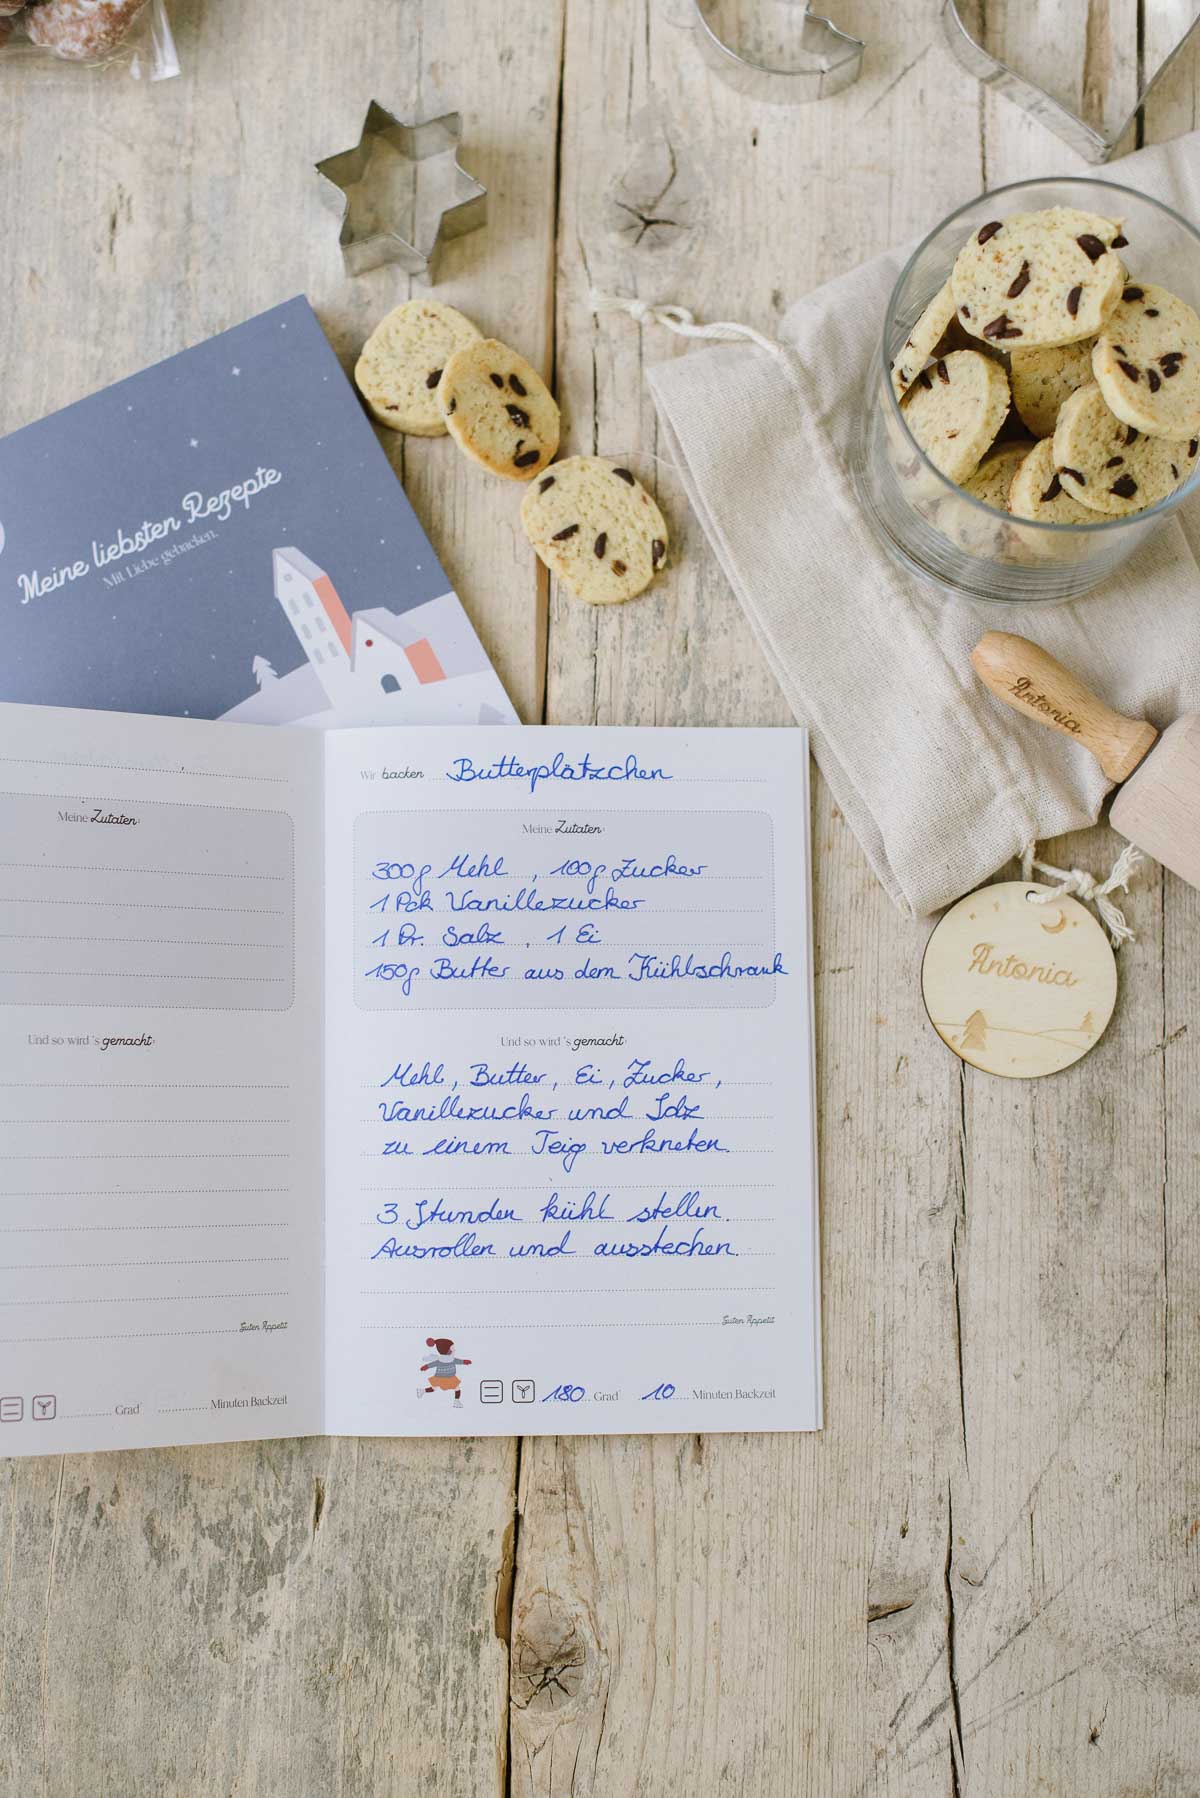 Meine liebsten Rezepte
Mit Liebe gebacken.
Antonia
Antonia
Meine Zutaten:
Und so wird 's gemacht:
Guten Appetit
Grad
Minuten Backzeit
Wir backen Butterplätzchen
Meine Zutaten:
300g Mehl , 100g Zucker
1 Pck Vanillezucker
1 Pr. Salz , 1 Ei
150g Butter aus dem Kühlschrank
Und so wird 's gemacht:
Mehl, Butter, Ei, Zucker,
Vanillezucker und Salz
zu einem Teig verkneten.
3 Stunden kühl stellen.
Ausrollen und ausstechen.
Guten Appetit
180 Grad 10 Minuten Backzeit